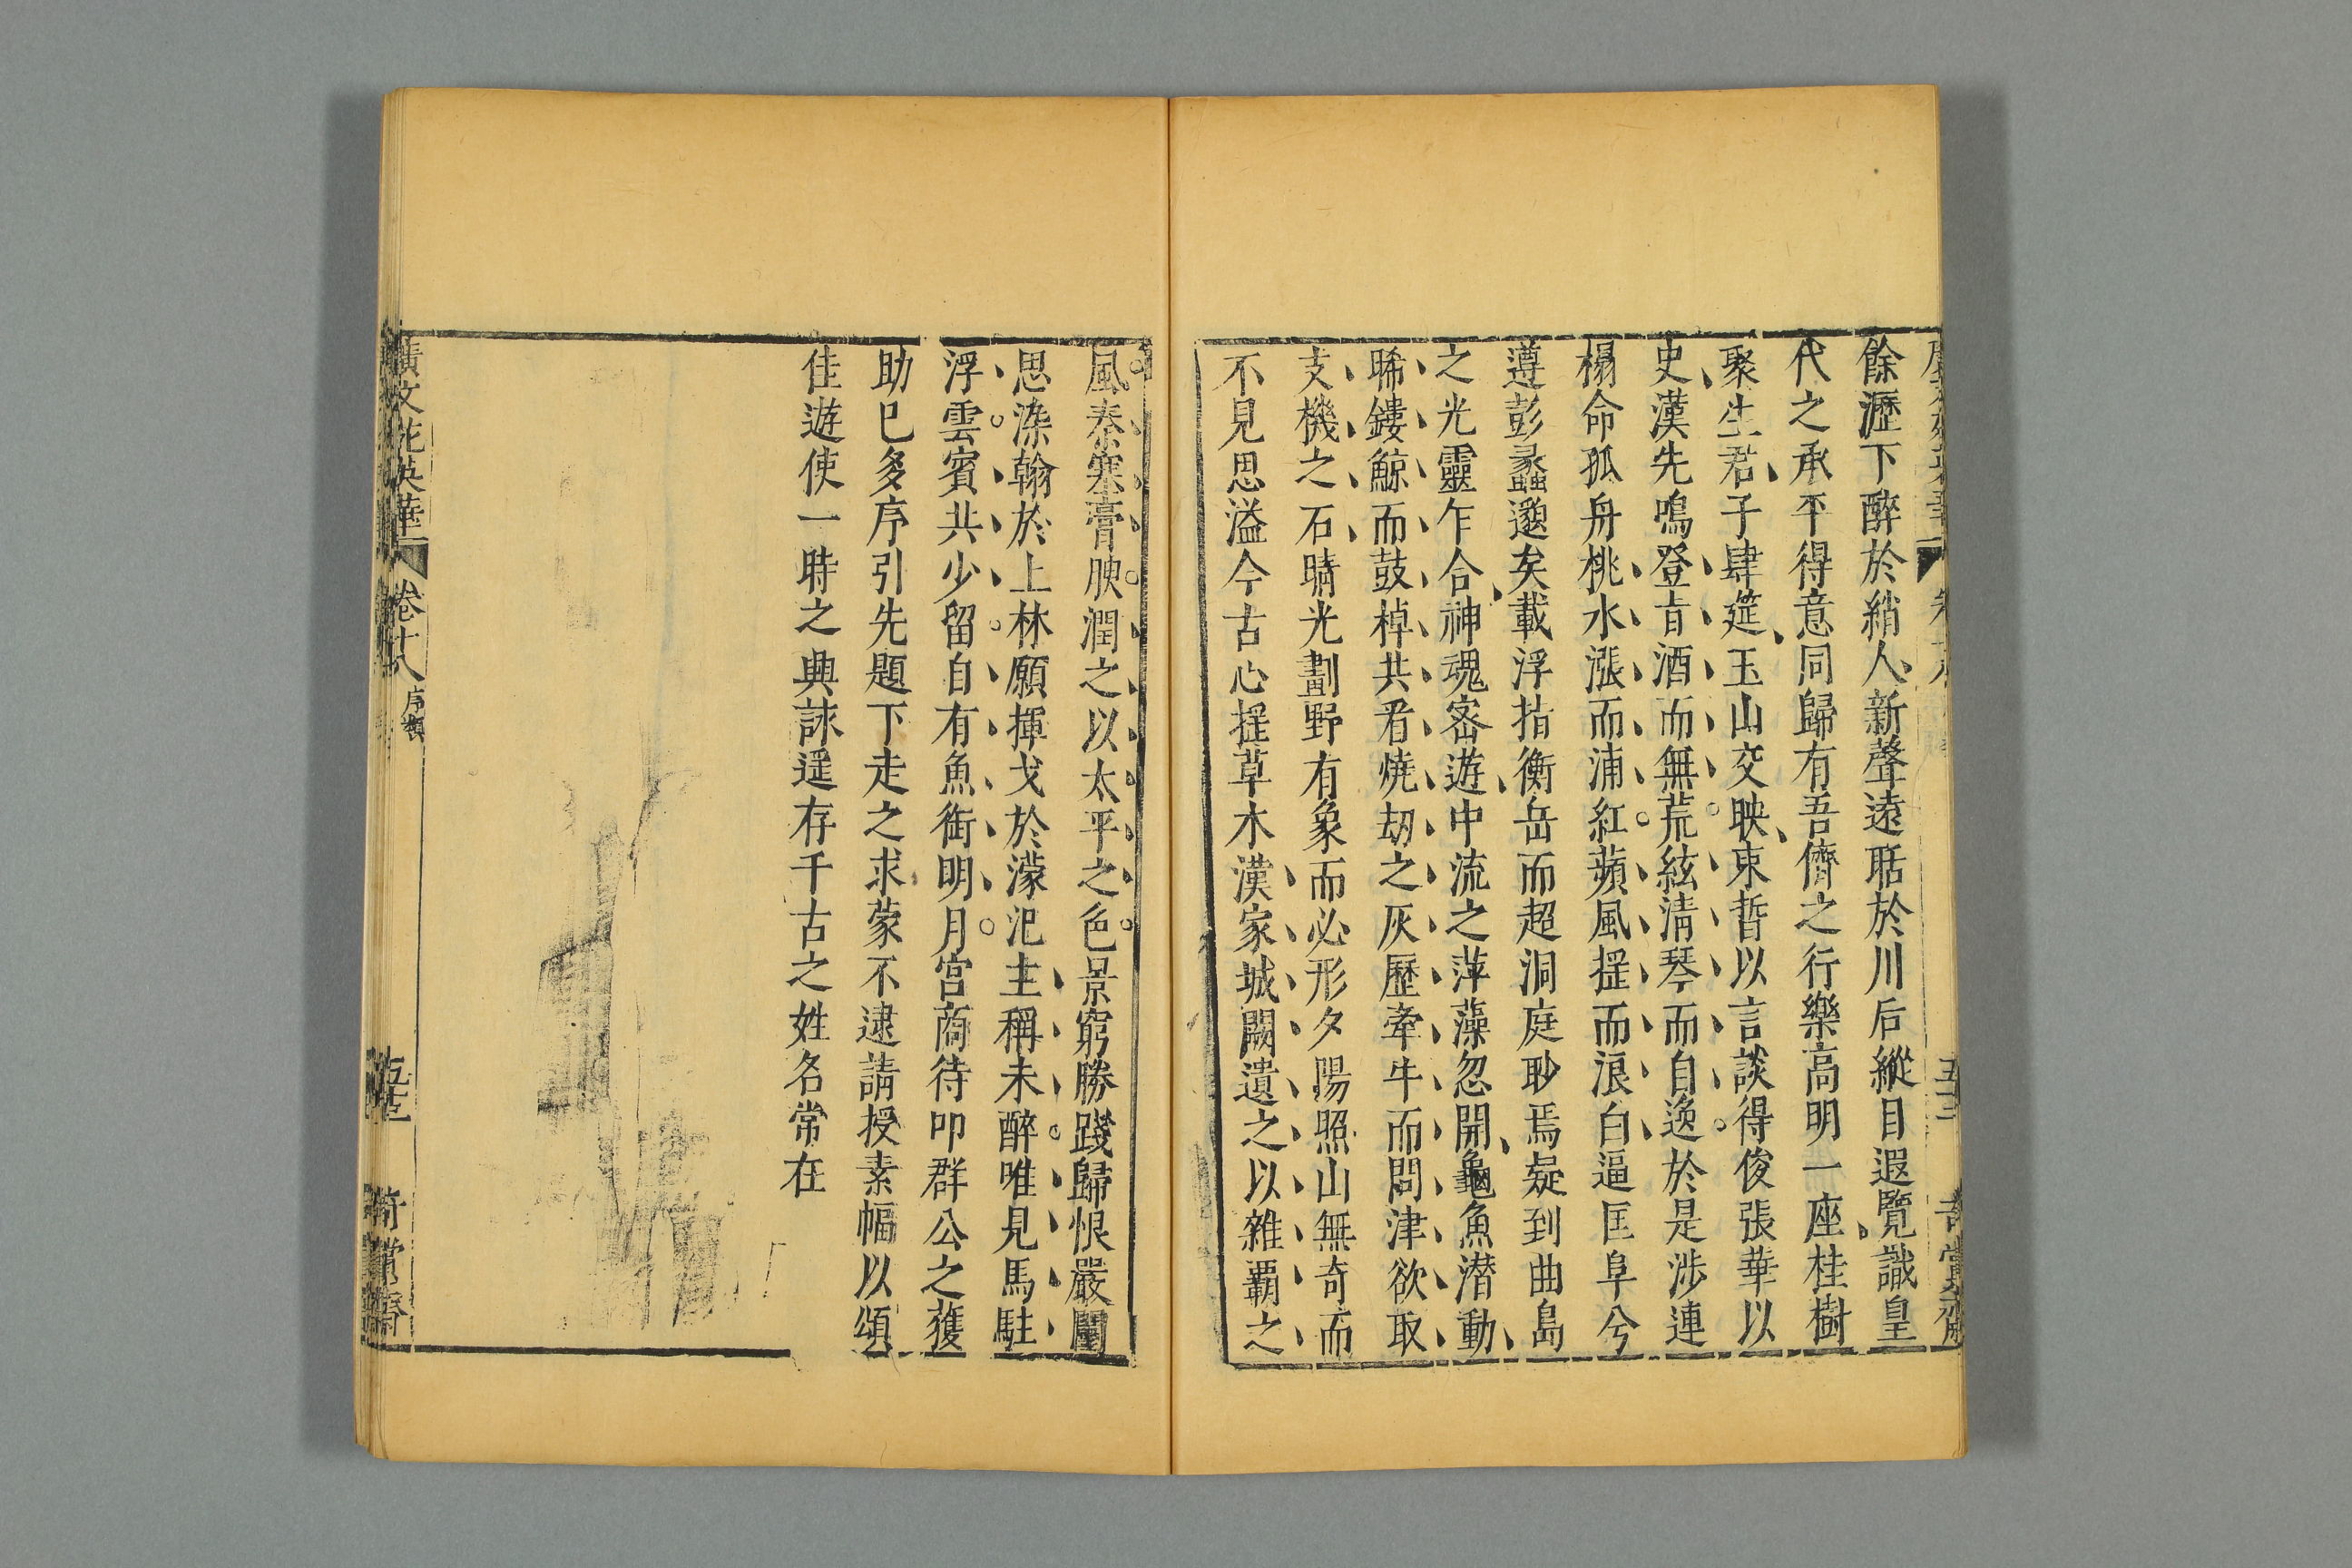 餘瀝下醉於綃人新聲遠聒於川后縱目遐覽識皇
代之承平得意同歸有吾儕之行樂高明一座桂樹
聚生君子肆筵玉山交映束晳以言談得俊張華以
史漢先鳴登旨酒而無荒絃清琴而自逸於是涉連
榻命孤舟桃水漲而浦紅蘋風揺而浪白逼匡阜兮
遵彭蠡邈矣載浮指衡岳而超洞庭眇焉疑到曲島
之光靈乍合神魂密遊中流之萍藻忽開龜魚潜動
睎鏤鯨而鼓棹共看燒劫之灰歷牽牛而問津欲取
支機之石晴光劃野有象而必形夕陽照山無奇而
不見思溢今古心揺草木漢家城闕遺之以雜覇之
風秦塞膏腴潤之以太平之色景窮勝踐歸恨嚴闉
思染翰於上林願揮戈於濛汜主稱未醉唯見馬駐
浮雲賓共少留自有魚銜明月宫商待叩群公之獲
助已多序引先題下走之求蒙不逮請授素幅以頌
佳遊使一時之興詠遥存千古之姓名常在
廣文苑英華 卷十八 序類 奇賞齋